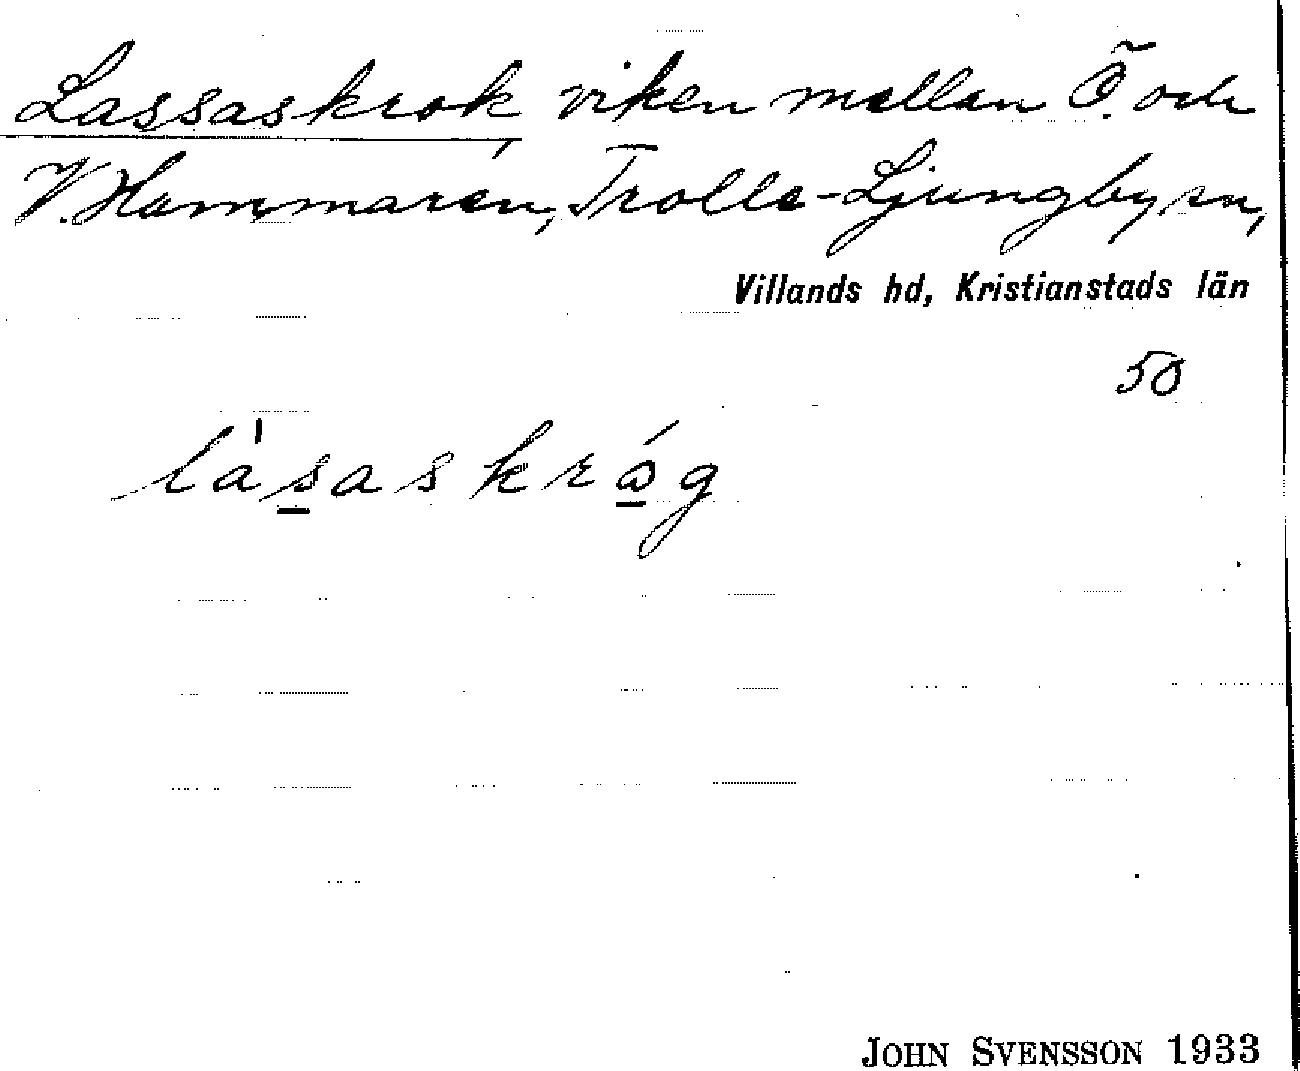 Lassaskrok, viken mellan Ö. och
V. Hammaren, Trolle-Ljungby sn,
Villands hd, Kristianstads län
50
låsaskråg
JOHN SVENSSON 1933